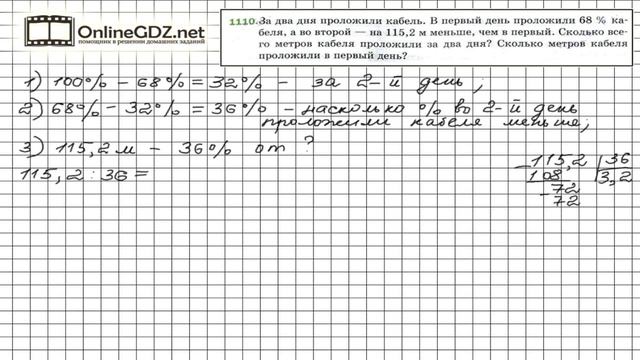 OnlineGDZ.net
помощник в решении домашних заданий
1110. За два дня проложили кабель. В первый день проложили 68 % ка-
беля, а во второй — на 115,2 м меньше, чем в первый. Сколько все-
го метров кабеля проложили за два дня? Сколько метров кабеля
проложили в первый день?
1) 100% - 68% = 32% - за 2-й день;
2) 68% - 32% = 36% - насколько % во 2-й день
проложили кабеля меньше;
3) 115,2 м - 36% от ?
115,2 : 36 =
- 115,2 | 36
108 | 3,2
- 72
72